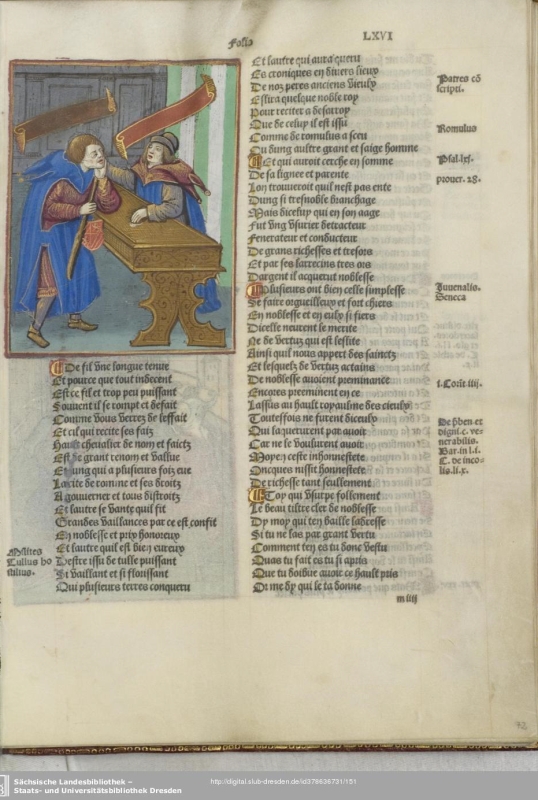 Folio
LXVI
De fil une longue tenue
Et pource que tout indecent
Est ce fil et trop peu puissant
Souvent il se rompt et defait
Comme vous verrez de leffait
Et cil qui recite ses faiz
Hault chevalier de nom et faictz
Est de grant renom et vallue
Et ung qui a plusieurs foiz eue
La cite de romme et ses droitz
A gouverner et tous distroitz
Et lautre se vante quil fit
Grandes vaillances par ce est confit
En noblesse et prix honoreux
Et lautre quil est bien eureux
Destre issu de tulle puissant
Si vaillant et si florissant
Qui plusieurs terres conqueru
Milites
Tullus ho
stilius.
Et lautre qui aura queru
Es croniques en divers lieux
De noz peres anciens vieulx
Estira quelque noble roy
Pour reciter a desarroy
Que de celuy il est issu
Comme de romulus a sceu
Ou dung aultre grant et saige homme
Et qui auroit cerche en somme
De sa lignee et parente
Lon trouveroit quil nest pas ente
Dung si tresnoble branchage
Mais dicelluy qui en son aage
Fut ung usurier detracteur
Fenerateur et conducteur
De grans richesses et tresors
Et par ses larrecins tres ors
Dargent il acquerut noblesse
Plusieurs ont bien celle simplesse
Se faire orgueilleux et fort chiers
En noblesse et en eulx si fiers
Dicelle neurent le merite
Ne de vertuz qui est leslite
Ainsi quil nous appert des sainctz
Et lesquelz de vertuz actains
De noblesse avoient preminance
Encores preeminent en ce
Lassus au hault royaulme des cieulx
Toutesfois ne furent diceulx
Qui lacquerurent par avoir
Car ne le voulurent avoir
Moyen ceste inhonnestete
Oncques nissit honnestete
De richesse tant seullement
Toy qui usurpe follement
Le beau tiltre cler de noblesse
Dy moy qui ten baille ladresse
Si tu ne las par grant vertu
Comment ten es tu donc vestu
Quas tu fait es tu si apris
Que tu doibve avoir ce hault pris
Or me dy qui le ta donne
m iiij
Patres cō
scripti.
Romulus
Psal. lxj.
prover. 28.
Juvenalis.
Seneca
i. Corīt iiij.
De hben et
digni. c. ve
nerabilis.
Bar. in l. i.
C. de inco-
lis. li. x.
72
Sächsische Landesbibliothek –
Staats- und Universitätsbibliothek Dresden
http://digital.slub-dresden.de/id378636731/151